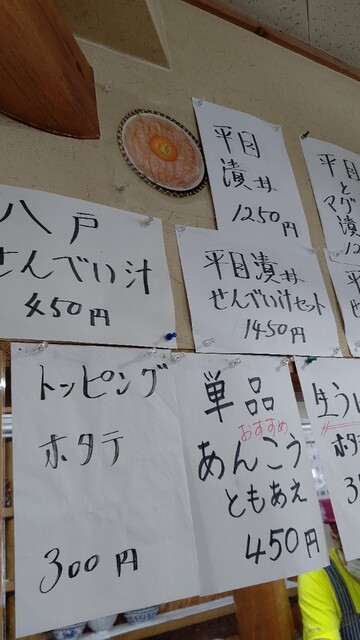 平目
漬丼
1250円
平目
と
マグ
漬
八戸
せんべい汁
450円
平目漬丼
せんべい汁セット
1450円
トッピング
ホタテ
300円
単品
おすすめ
あんこう
ともあえ
450円
生う
ホタ
3